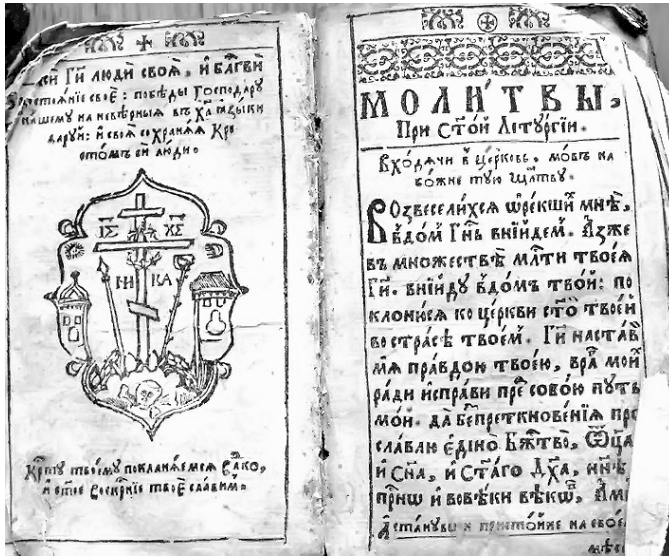 ки Гн҃ люди своѧ̀, и̂ бл҃гви̂
достоѧ́нїе своѐ: побѣ́ды Господарꙋ
на́шемꙋ на невѣ́рныѧ въ Ха҃ ꙗ҆зы́ки
дарꙋ́й: и̂ своѧ̀ сохранѧ́ѧ Кре
сто́мъ си̂ лю́ди.
ІС҃ ХС҃
НИ КА
Кр҃тꙋ твоемꙋ покланѧ́емсѧ влⷣко,
и̂ ст҃ое воскрⷭ҇нїе твоѐ сла́вим.
МОЛИ́ТВЫ,
При Ст҃о́й Лїтꙋргїи.
Вхо́дѧчи в̾ це́рковь, мовъ на
бо́жне тꙋю мл҃твꙋ.
Возвесели́хсѧ ѡ̂ ре́кших̾ мнѣ̀,
в̾до́м Гн҃ь вни́йдем. А҆́зже
въ мно́жествѣ мл҃ти твоеѧ̀
Гн҃. вни́йдꙋ в̾до́мъ тво́й: по
клоню́сѧ ко це́ркви ст҃о́й твое́й
во стра́сѣ твое́м. Гн҃ наста́в̾
мѧ̀ пра́вдою твое́ю, вра҃г мои́х
ра́ди и̂спра́ви пре҃ собо́ю пꙋ́ть
мо́й. да̀ беⷥпреткнове́нїѧ про
сла́влю є҆ди́но Бж҃тво̀, Ѿц҃а
и̂ Сн҃а, и̂ Ст҃а́го Дх҃а, ни҃нѣ
при҃сн̾ѡ и̂ вовѣ́ки вѣ́кѡ҃, А҆ми
А станꙋ́вши пристойне на свое́